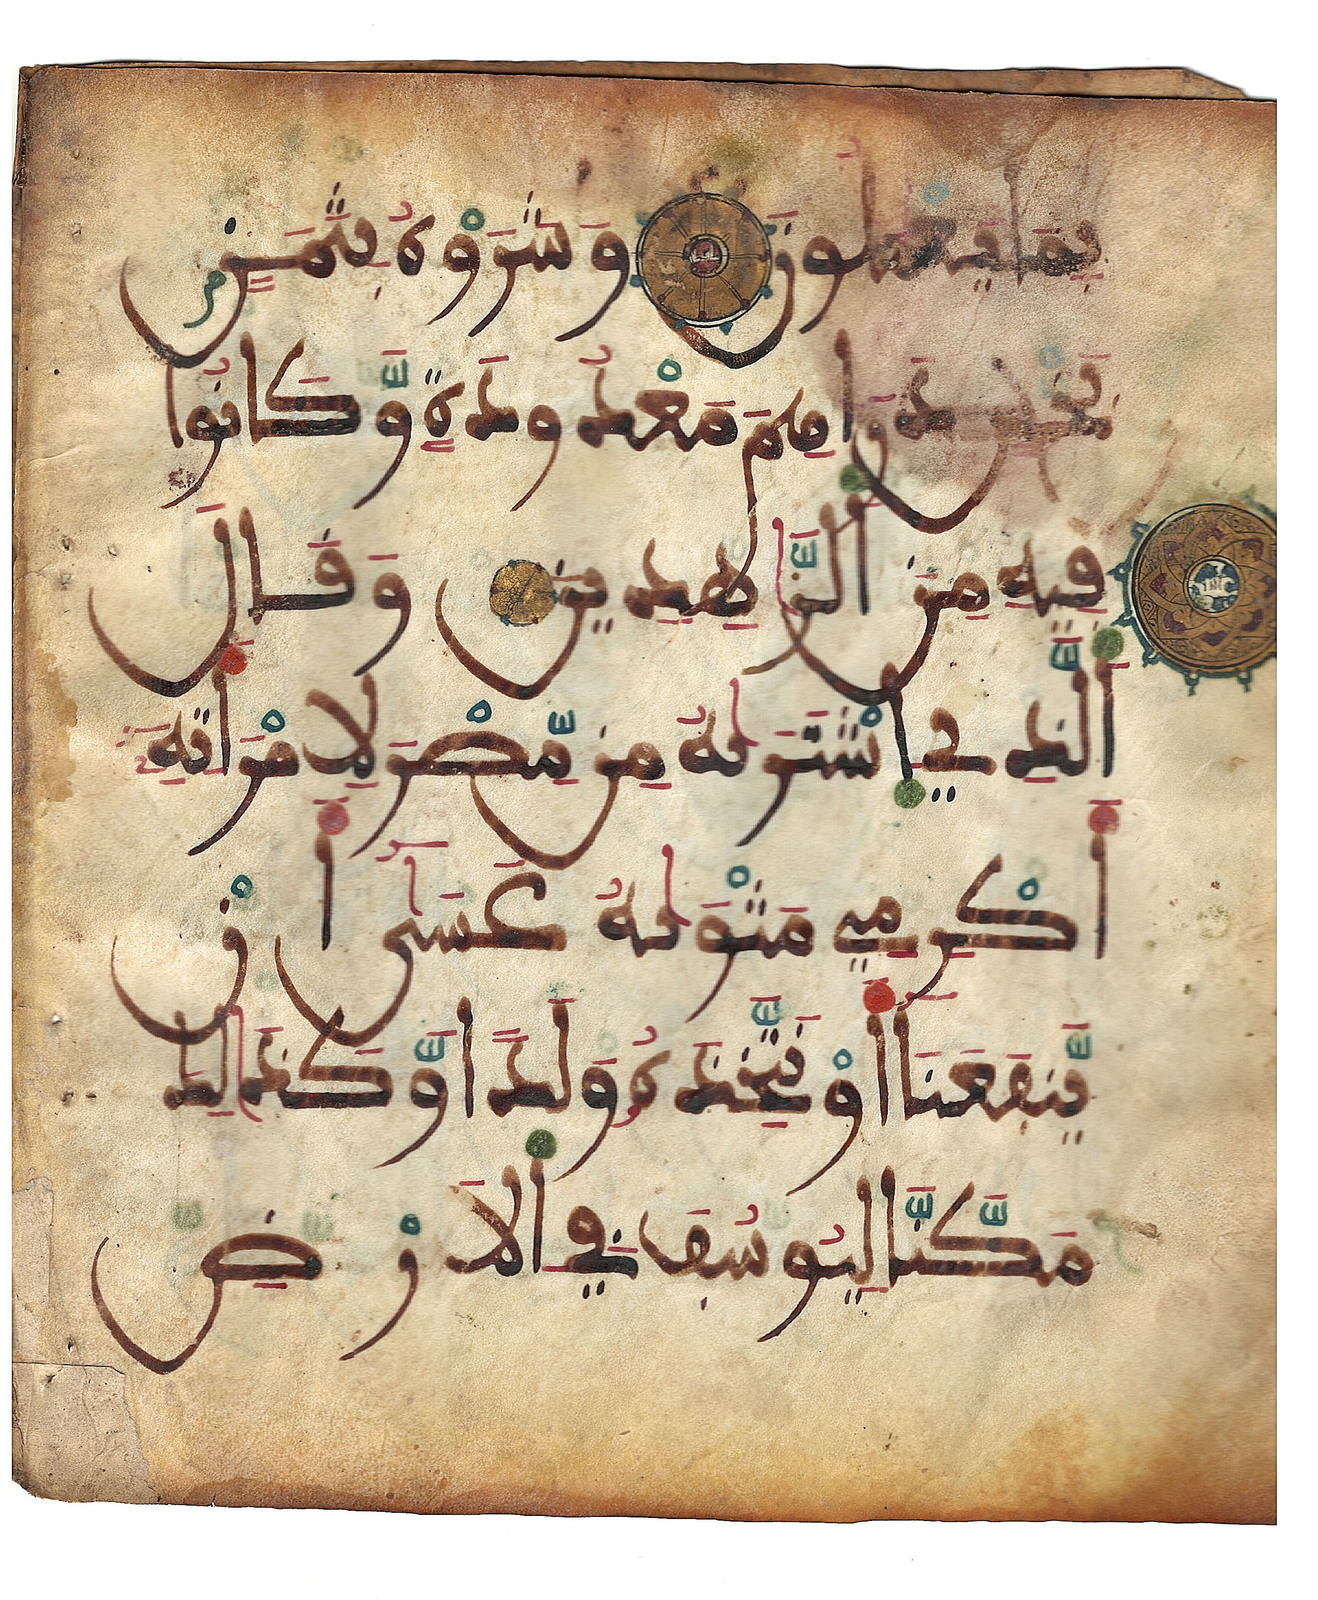 بِمَا يَعْمَلُونَ وَشَرَوْهُ بِثَمَنٍ
بَخْسٍ دَرَٰهِمَ مَعْدُودَةٍ وَّكَانُوا
فِيهِ مِنَ ٱلزَّٰهِدِينَ وَقَالَ
ٱلَّذِي ٱشْتَرَىٰهُ مِن مِّصْرَ لِامْرَأَتِهِ
أَكْرِمِي مَثْوَىٰهُ عَسَىٰٓ أَنْ
يَّنفَعَنَا أَوْ نَتَّخِذَهُ وَلَدًا وَّكَذَٰلِكَ
مَكَّنَّا لِيُوسُفَ فِي ٱلَارْضِ